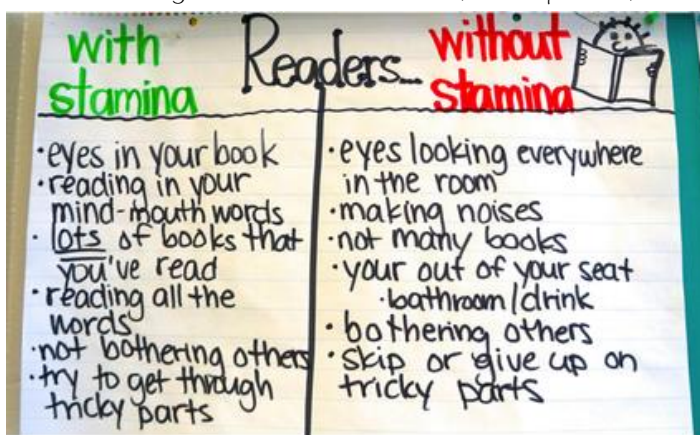 with
stamina
Readers...
without
stamina
•eyes in your book
•reading in your
mind-mouth words
•lots of books that
you've read
•reading all the
words
•not bothering others
•try to get through
tricky parts
•eyes looking everywhere
in the room
•making noises
•not many books
•your out of your seat
•bathroom/drink
•bothering others
•skip or give up on
tricky parts